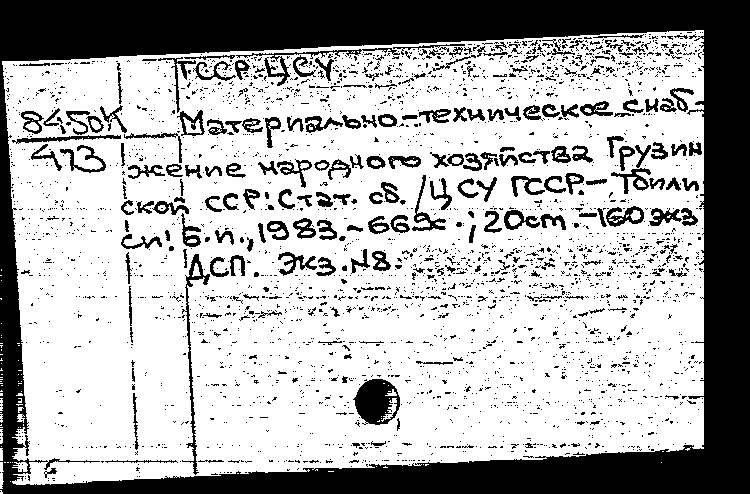 ГССР. ЦСУ
84-50К Материально-техническое снаб-
473 жение народного хозяйства Грузин
ской ССР: Стат. сб. / ЦСУ ГССР.- Тбили
си: Б.и., 1983.- 669с.; 20cm.-160экз
ДСП. Экз. N8.